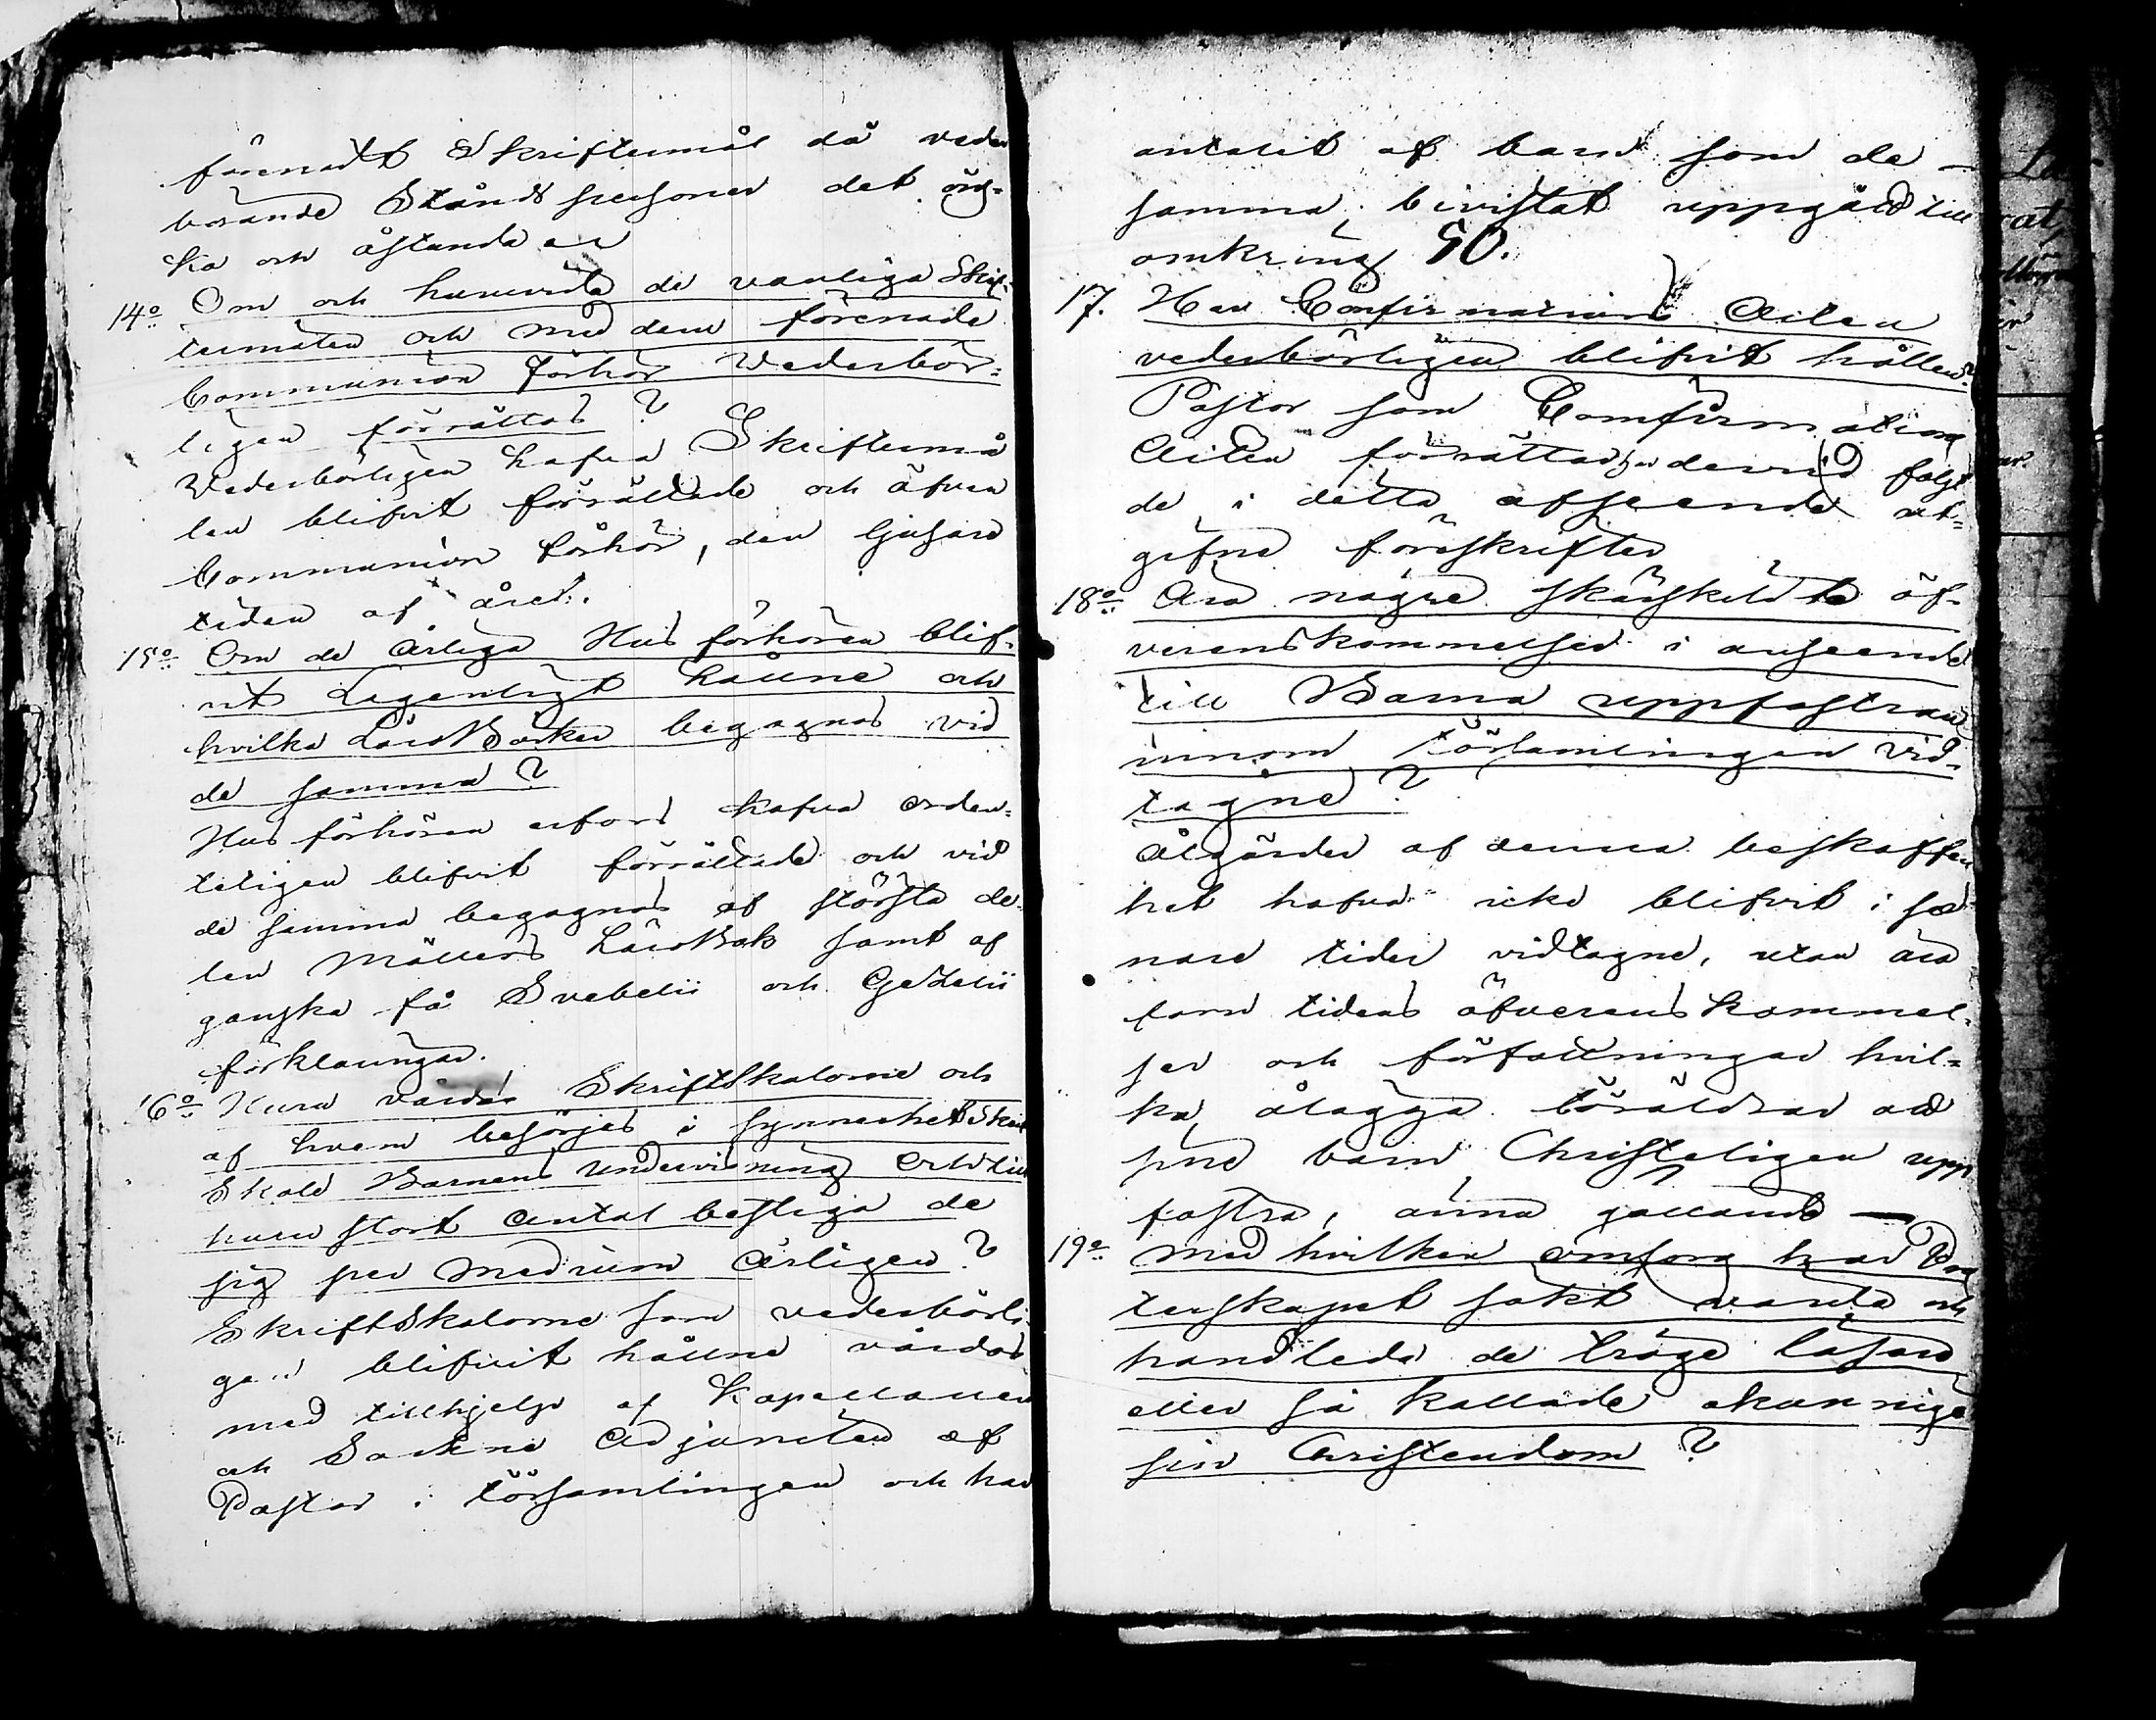 förenadt Skriftermål då veder
börande Ståndspersoner det öns-
ka och åstunda
14o Om och huruvida de vanliga Skrif-
termålen och med dem förenade
Communion Förhör Vederbör-
ligen förrättas?
Vederbörligen hafva Skriftermå
len blifvit förrättade och äfven
Communion Förhör, den ljusare
tiden af året.
15o Om de årliga Husförhören blif-
vit Lagenligt hållne och
hvilka LäroBöcker begagnas vid
de samma?
Husförhören hafva orden-
teligen blifvit förrättade och vid
de samma begagnas af största de-
len Möllers LäroBok samt af
ganska få Svebelii och Gezelii
förklaringar.
16o Huru vårdas Skriftskolorne och
af hvem besörjes i synnerhet
Skole Barnens undervisning och till
huru stort antal bestiga de
sig per medium årligen?
Skriftskolorne som vederbörli-
gen blifvit hållne vårdas
med tillhjelp af Kapellanen
och Sockne Adjuncten af
Pastor i Församlingen och har
antalet af barn som de-
samma bevistat uppgådt till
omkring 50.
17. Har Confirmations Acten
vederbörligen blifvit hållen?
Pastor som Comfirmations
Acten förrättar har dervid följt
de i detta afseende ut-
gifne föreskrifter
18o Äro någre särskildte öf-
verenskommelser i anseende
till Barna uppfostran
innom Församlingen vid-
tagne?
Åtgärder af denna beskaffen
het hafva icke blifvit i se-
nare tider vidtagne, utan äro
forntidens öfverenskommel-
ser och författningar hvil-
ka ålägga Föräldrar att
sine barn Christeligen upp
fostra, ännu gällande —
19o Med hvilken omsorg har Pre
sterskapet sökt vårda och
handleda de tröge läsare
eller så kallade okunnige
sin Christendom?